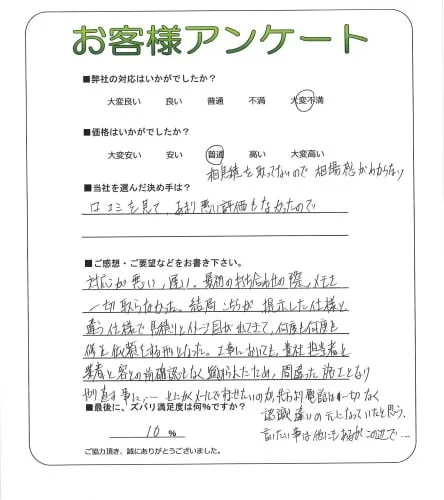 お客様アンケート
■弊社の対応はいかがでしたか？
大変良い 良い 普通 不満 大変不満
■価格はいかがでしたか？
大変安い 安い 普通 高い 大変高い
相見積を取ってないので 相場感がわからない
■当社を選んだ決め手は？
口コミを見て、あまり悪い評価もなかったので
■ご感想・ご要望などをお書き下さい。
対応が悪い、遅い。最初の打ち合わせの際、メモを
一切取らなかった。結局こちらが提示した仕様と
違う仕様で見積りとイメージ図がでてきて、何度も何度も
修正依頼をする形となった。工事においても、貴社担当者と
業者と客との事前確認もなく進められたため、間違った施工となり
やり直す事に、ーとにかくメールで済ませたいのか先方より電話は一切なく
■最後に、ズバリ満足度は何%ですか？
認識違いの元になっていたと思う。
10 %
言いたい事は他にもあるがこの辺で…
ご協力頂き、誠にありがとうございました。